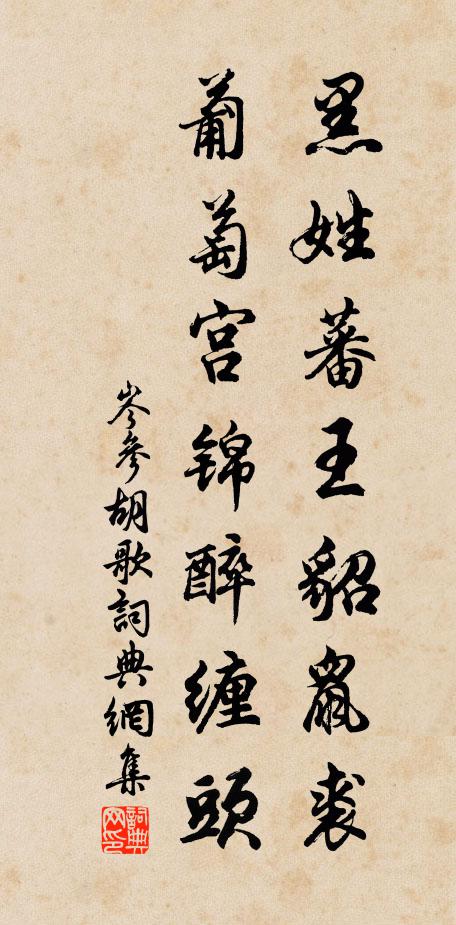 黑姓蕃王貂鼠裘
葡萄宫锦醉缠頭
岑參胡歌詞典網集
詞典网印